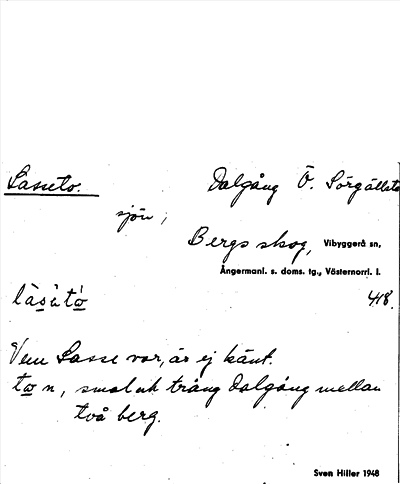 Lasseto.
Dalgång Ö. Sörgällsta
sjön;
Bergs skog, Vibyggerå sn,
Ångermanl. s. doms. tg., Västernorrl. l.
låsåtò
418.
Vem Lasse var, är ej känt.
to n, smal och trång dalgång mellan
två berg.
Sven Hiller 1948